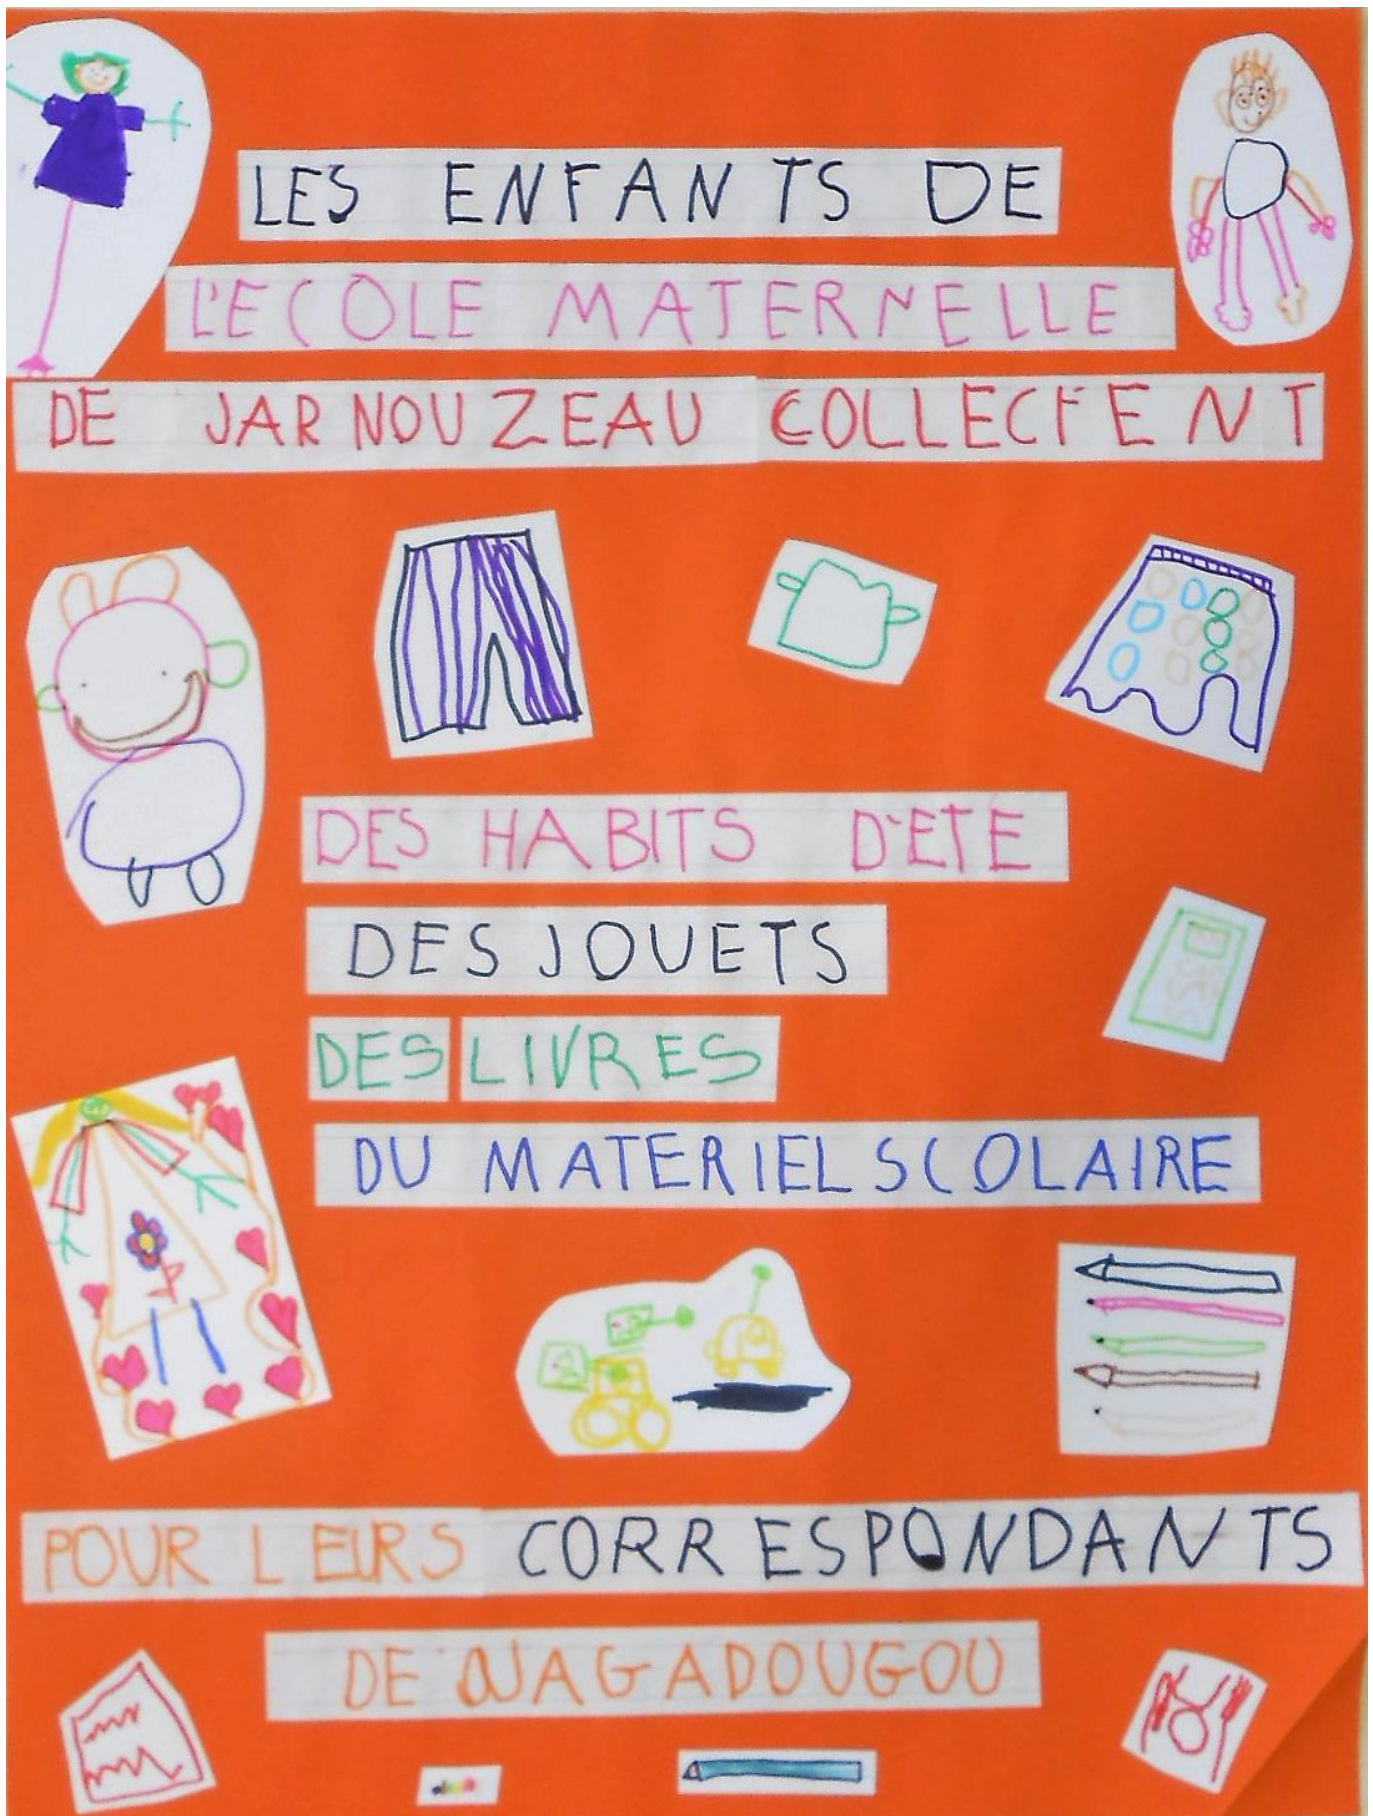 LES ENFANTS DE
L'ECOLE MATERNELLE
DE JARNOUZEAU COLLECTENT
DES HABITS D'ETE
DES JOUETS
DES LIVRES
DU MATERIEL SCOLAIRE
POUR LEURS CORRESPONDANTS
DE OUAGADOUGOU